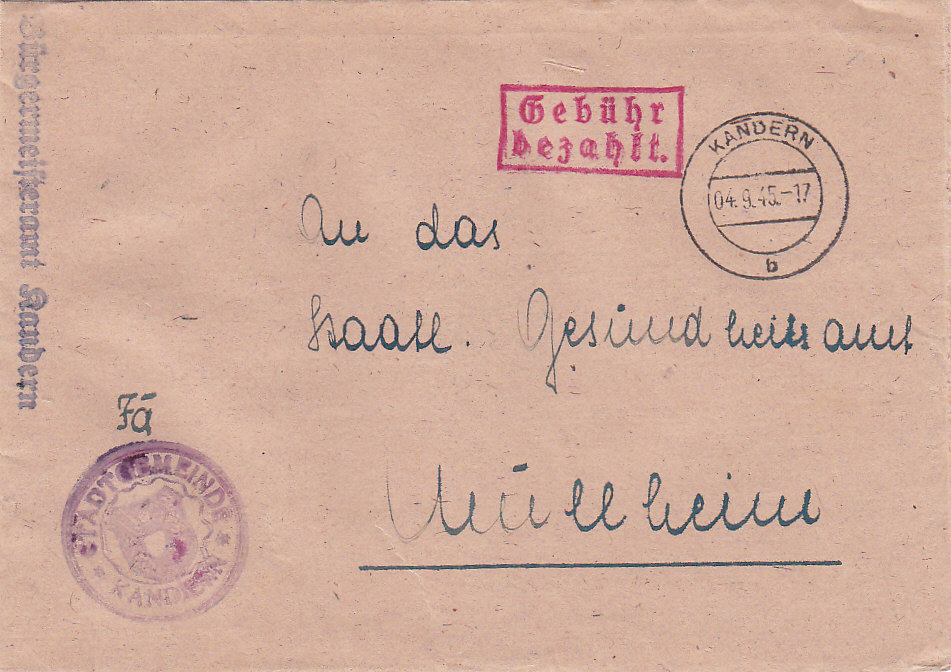 Bürgermeisteramt Kandern
Gebühr
bezahlt.
KANDERN
04.9.45.-17
b
An das
Staatl. Gesundheitsamt
Fä
STADTGEMEINDE
* KANDERN *
Müllheim